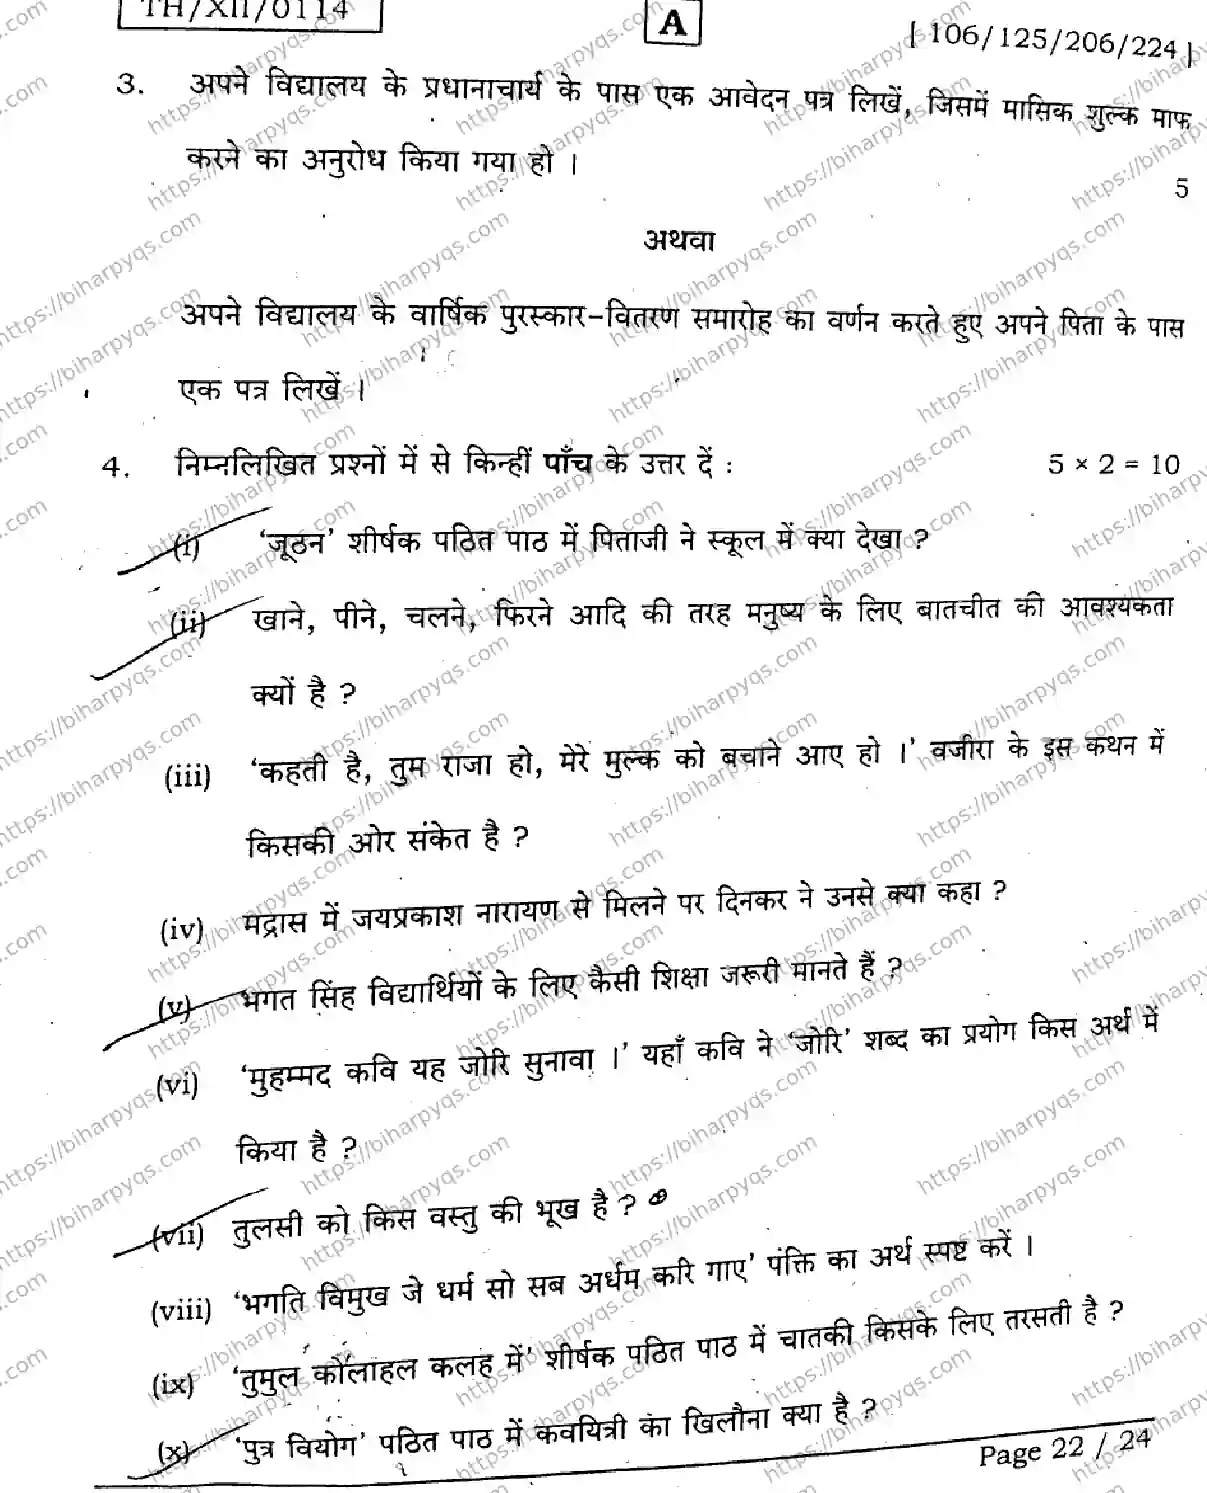 TH/XII/0114
A
| 106/125/206/224 |
3. अपने विद्यालय के प्रधानाचार्य के पास एक आवेदन पत्र लिखें, जिसमें मासिक शुल्क माफ
करने का अनुरोध किया गया हो ।
5
अथवा
अपने विद्यालय के वार्षिक पुरस्कार-वितरण समारोह का वर्णन करते हुए अपने पिता के पास
एक पत्र लिखें ।
4. निम्नलिखित प्रश्नों में से किन्हीं पाँच के उत्तर दें : 5 × 2 = 10
(i) 'जूठन' शीर्षक पठित पाठ में पिताजी ने स्कूल में क्या देखा ?
(ii) खाने, पीने, चलने, फिरने आदि की तरह मनुष्य के लिए बातचीत की आवश्यकता
क्यों है ?
(iii) 'कहती है, तुम राजा हो, मेरे मुल्क को बचाने आए हो ।' वजीरा के इस कथन में
किसकी ओर संकेत है ?
(iv) मद्रास में जयप्रकाश नारायण से मिलने पर दिनकर ने उनसे क्या कहा ?
(v) भगत सिंह विद्यार्थियों के लिए कैसी शिक्षा जरूरी मानते हैं ?
(vi) 'मुहम्मद कवि यह जोरि सुनावा ।' यहाँ कवि ने 'जोरि' शब्द का प्रयोग किस अर्थ में
किया है ?
(vii) तुलसी को किस वस्तु की भूख है ?
(viii) 'भगति विमुख जे धर्म सो सब अर्धम करि गाए' पंक्ति का अर्थ स्पष्ट करें ।
(ix) 'तुमुल कौलाहल कलह में' शीर्षक पठित पाठ में चातकी किसके लिए तरसती है ?
(x) 'पुत्र वियोग' पठित पाठ में कवयित्री का खिलौना क्या है ?
Page 22 / 24
https://biharpyqs.com